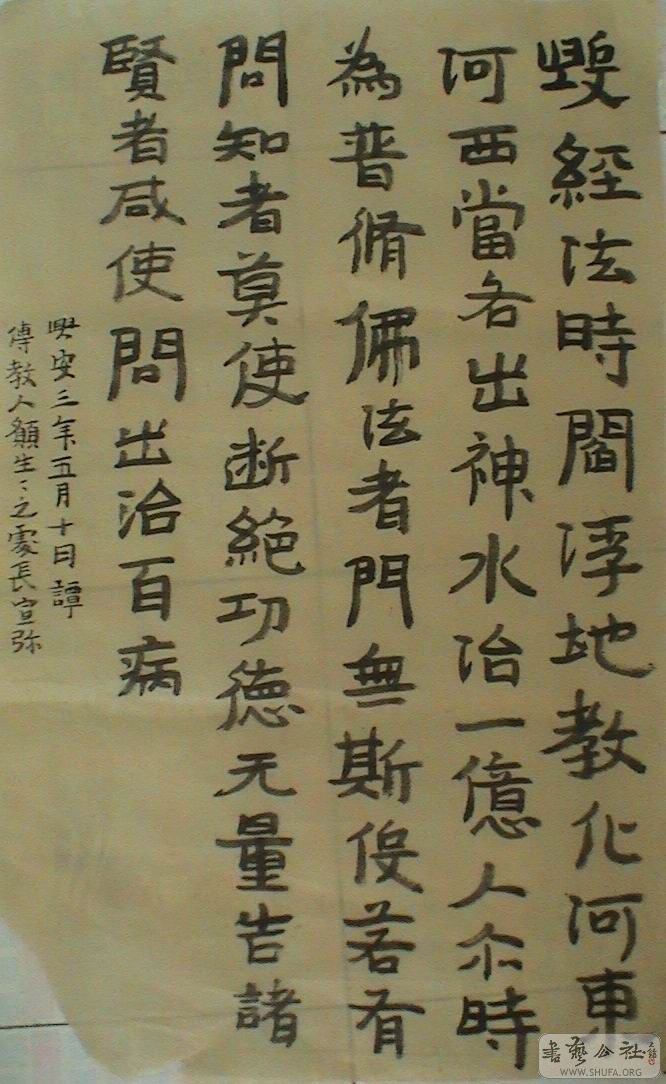 毀經法時閻浮地教化河東
河西當各出神水治一億人尒時
為普脩佛法者門無斯伇若有
問知者莫使断絕功德无量告諸
賢者咸使問出治百病
興安三年五月十日譚
傳教人願生〻之處長宣弥
書藝公社
WWW.SHUFA.ORG